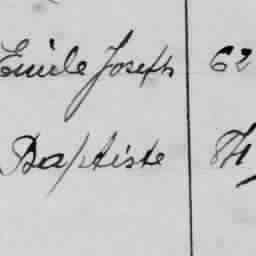 Emile Joseph 62
Baptiste 74